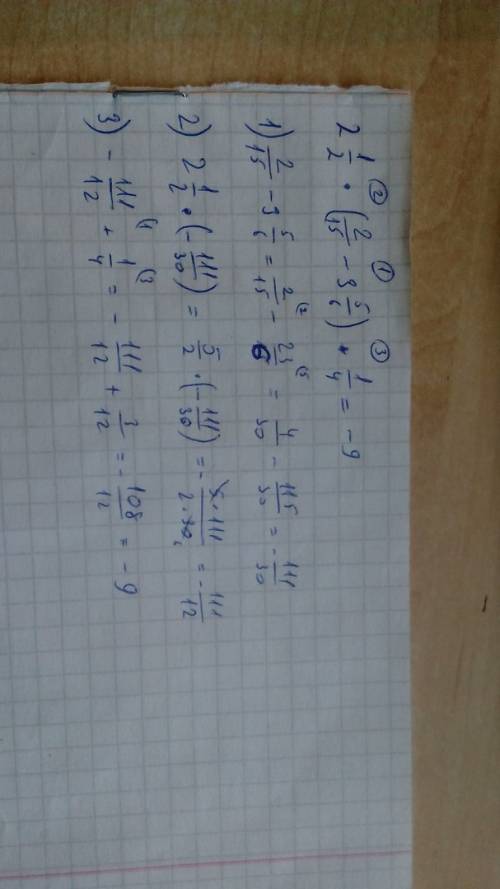 ② ① ③
2 1/2 · (2/15 − 3 5/6) + 1/4 = −9
1) 2/15 − 3 5/6 = 2/15 ⁽² − 23/6 ⁽⁵ = 4/30 − 115/30 = −111/30
2) 2 1/2 · (−111/30) = 5/2 · (−111/30) = −5·111/2·30₆ = −111/12
3) −111/12 ⁽¹ + 1/4 ⁽³ = −111/12 + 3/12 = −108/12 = −9